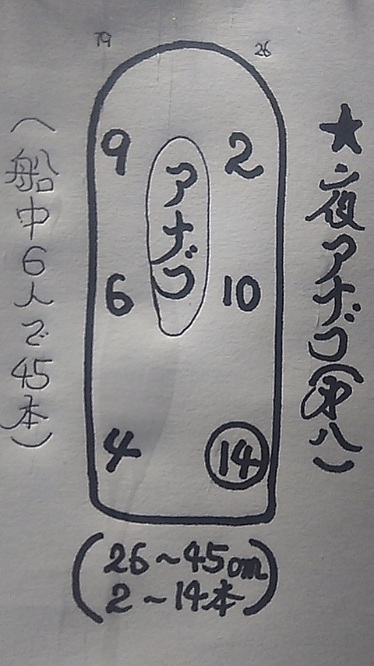 26
★夜アナゴ(八)
アナゴ
9 2
6 10
4 14
(船中6人で45本)
(26~45cm
2~14本)